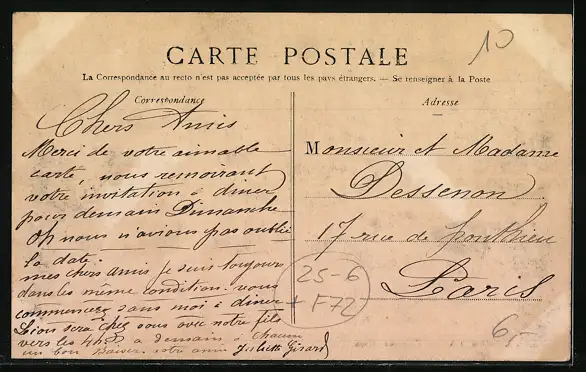 10
CARTE POSTALE
La Correspondance au recto n'est pas acceptée par tous les pays étrangers. — Se renseigner à la Poste
Correspondance
Chers Amis
Merci de votre aimable
carte, nous
votre invitation à diner
pour demain Dimanche
nous n'avions pas oublié
la date.
mes chers amis je suis toujours
dans les même condition. vous
commencerez sans moi à diner
Léon sera chez vous avec notre fils
vers les à demain à chacun
un bon Baiser. votre amie Juliette Girard
Adresse
Monsieur et Madame
Dessenon
17 rue de Ponthieu
Paris
25-6
+ F72
6-